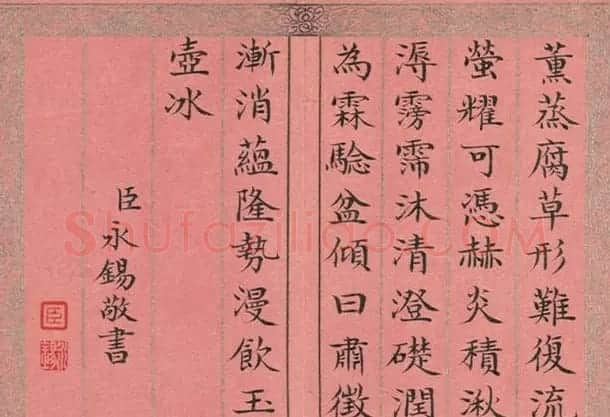 薰蒸腐草形難復流
螢耀可憑赫炎積湫
溽雱霈沐清澄礎潤
為霖驗盆傾曰肅徵
漸消蘊隆勢漫飲玉
壺冰
臣永錫敬書
臣
Shufaziliao.COM